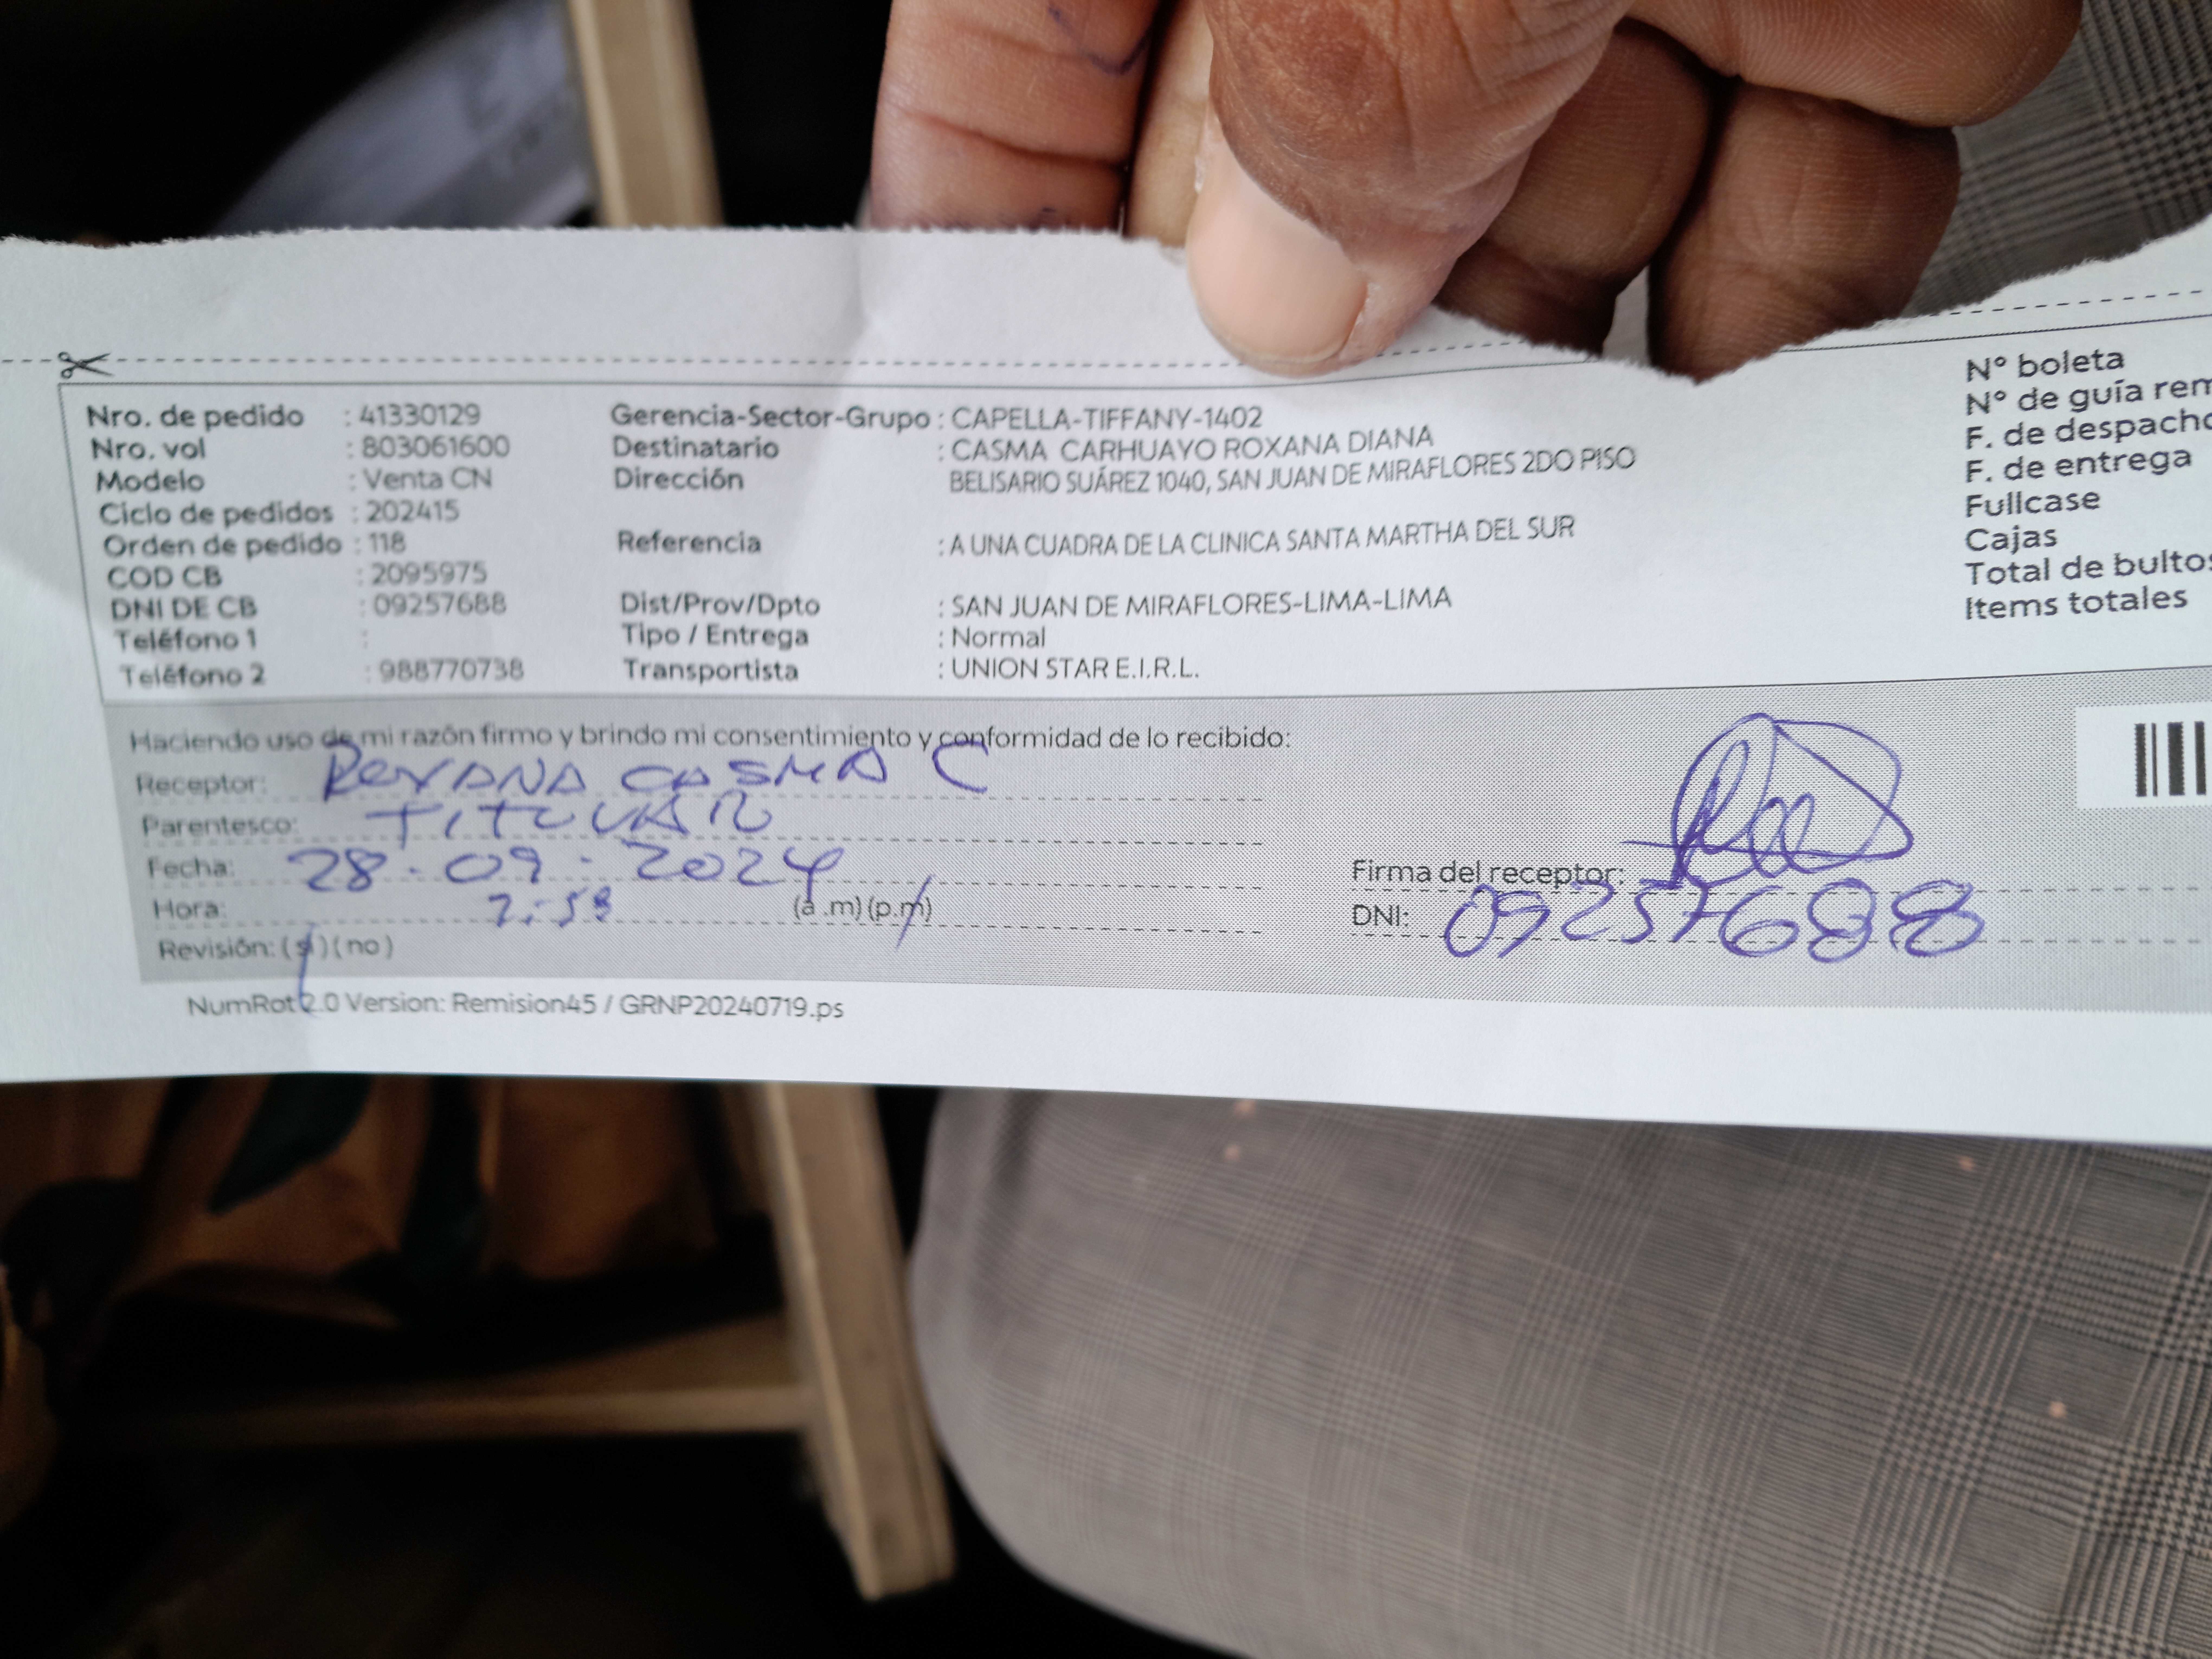 Nro. de pedido : 41330129
Nro. vol : 803061600
Modelo : Venta CN
Ciclo de pedidos : 202415
Orden de pedido : 118
COD CB : 2095975
DNI DE CB : 09257688
Teléfono 1 :
Teléfono 2 : 988770738
Gerencia-Sector-Grupo : CAPELLA-TIFFANY-1402
Destinatario : CASMA CARHUAYO ROXANA DIANA
Dirección BELISARIO SUÁREZ 1040, SAN JUAN DE MIRAFLORES 2DO PISO
Referencia : A UNA CUADRA DE LA CLINICA SANTA MARTHA DEL SUR
Dist/Prov/Dpto : SAN JUAN DE MIRAFLORES-LIMA-LIMA
Tipo / Entrega : Normal
Transportista : UNION STAR E.I.R.L.
N° boleta
N° de guía rem
F. de despacho
F. de entrega
Fullcase
Cajas
Total de bultos
Items totales
Haciendo uso de mi razón firmo y brindo mi consentimiento y conformidad de lo recibido:
Receptor: ROXANA CASMA C
Parentesco: TITULAR
Fecha: 28.09.2024
Hora: (a.m) (p.m)
Revisión: (si) (no)
Firma del receptor:
DNI: 09257688
NumRot 2.0 Version: Remision45 / GRNP20240719.ps